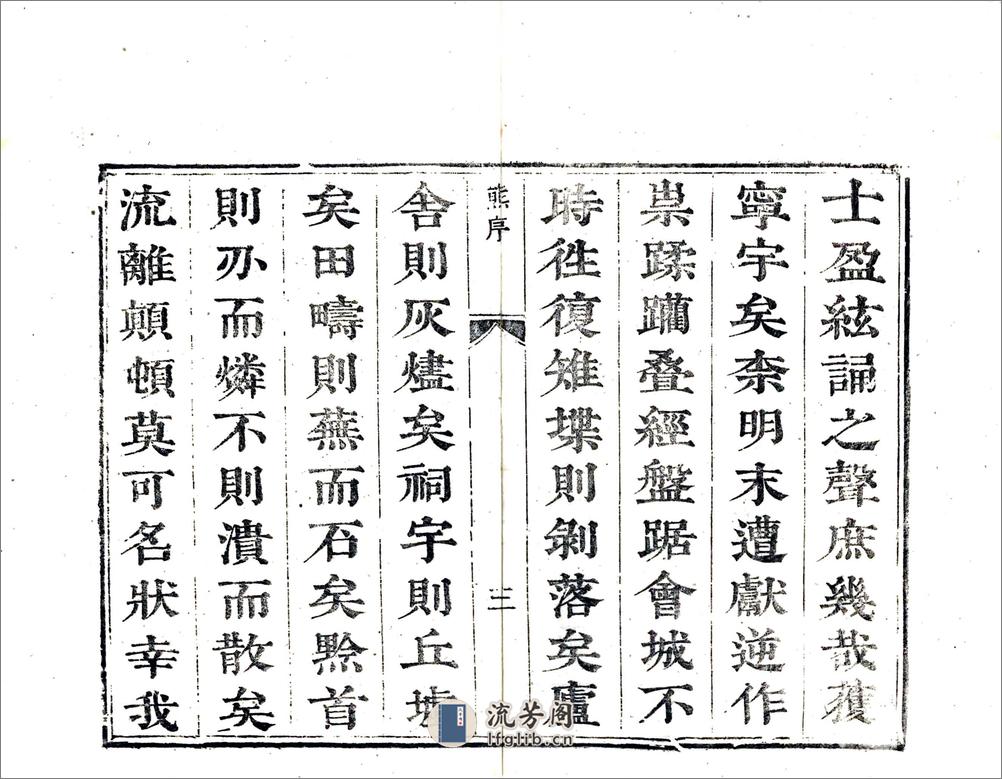 士盈絃誦之聲庶幾哉獲
寧宇矣柰明末遭獻逆作
祟蹂躪叠經盤踞會城不
時徃復雉堞則剝落矣廬
熊序
三
舎則灰燼矣祠宇則丘墟
矣田疇則蕪而石矣黔首
則刅而燐不則潰而散矣
流離顛頓莫可名狀幸我
流芳阁
lfglib.cn